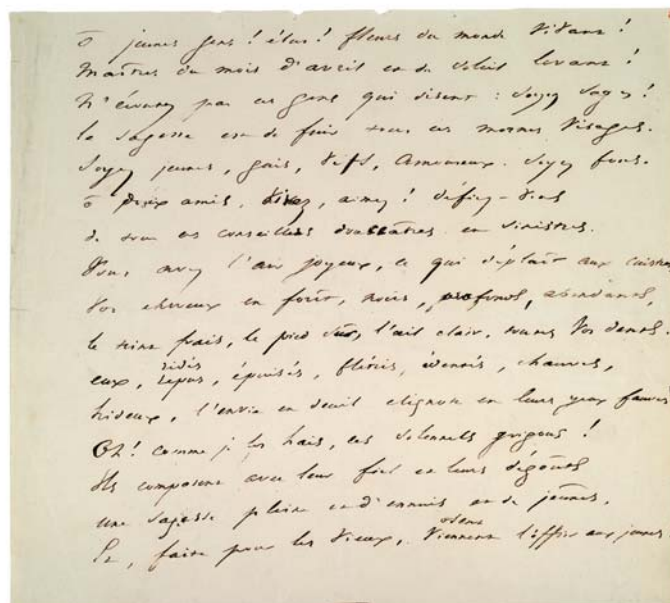 ô jeunes gens ! élus ! fleurs du monde vivant !
Maîtres du mois d'avril et du soleil levant !
N'écoutez pas ces gens qui disent : soyez sages !
la sagesse est de fuir tous ces mornes visages.
Soyez jeunes, gais, vifs, amoureux. soyez fous.
ô doux amis, vivez, aimez ! défiez-vous
de tous ces conseillers douceâtres et sinistres.
Vous avez l'air joyeux, ce qui déplaît aux cuistres
Vos cheveux en forêt, noirs, profonds, abondants,
le teint frais, le pied sûr, l'œil clair, toutes vos dents.
eux, ridés, épuisés, flétris, édentés, chauves,
hideux, l'envie en deuil clignote en leurs yeux fauves
Oh ! comme je les hais, ces solennels grigous !
Ils composent avec leur fiel et leurs dégoûts
une sagesse pleine et d'ennuis et de jeûnes,
Et, faite pour les vieux, osent l'offrir aux jeunes.